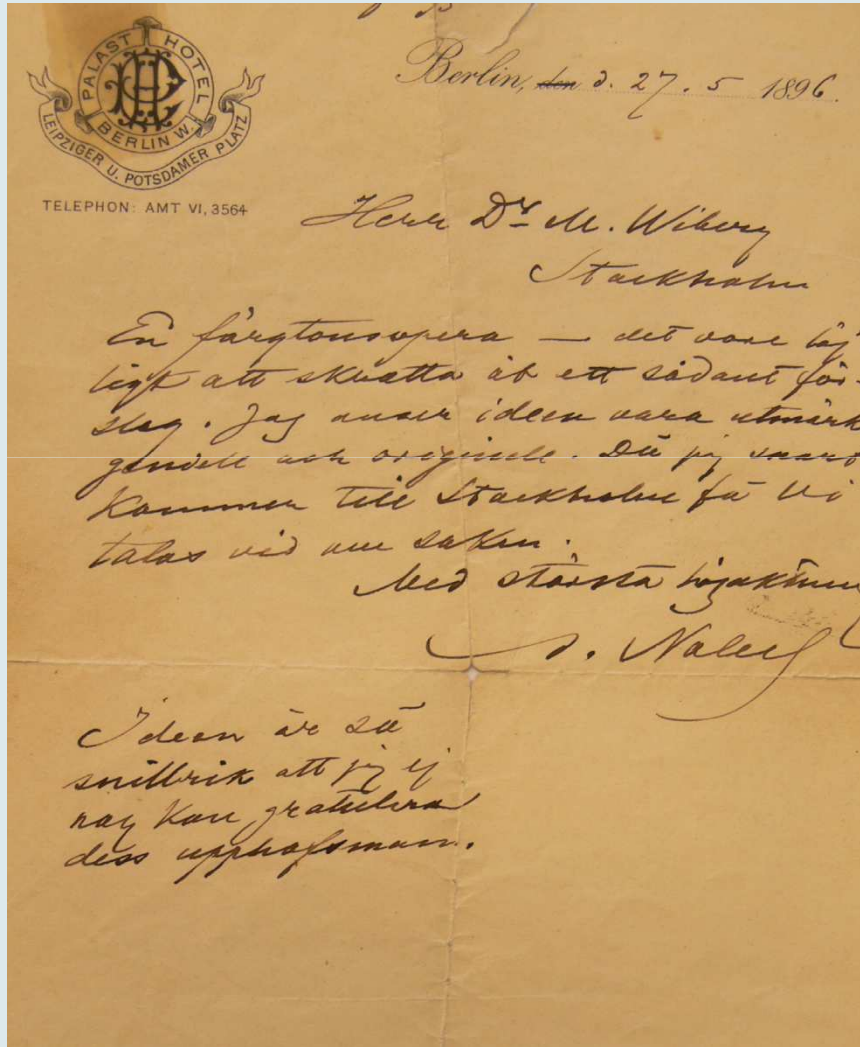 PALAST HOTEL
BERLIN W.
LEIPZIGER U. POTSDAMER PLATZ
TELEPHON: AMT VI, 3564
Berlin, den d. 27. 5 1896.
Herr Dr M. Wiberg
Stockholm
En färgtonsopera — det vore löj
ligt att skratta åt ett sådant för-
slag. Jag anser ideen vara utmärk
och originell. Då jag snart
kommer till Stockholm få vi
talas vid om saken.
Med största högaktning
A. Nobel
Ideen är så
snillrik att jag ej
nog kan gratulera
dess upphofsman.